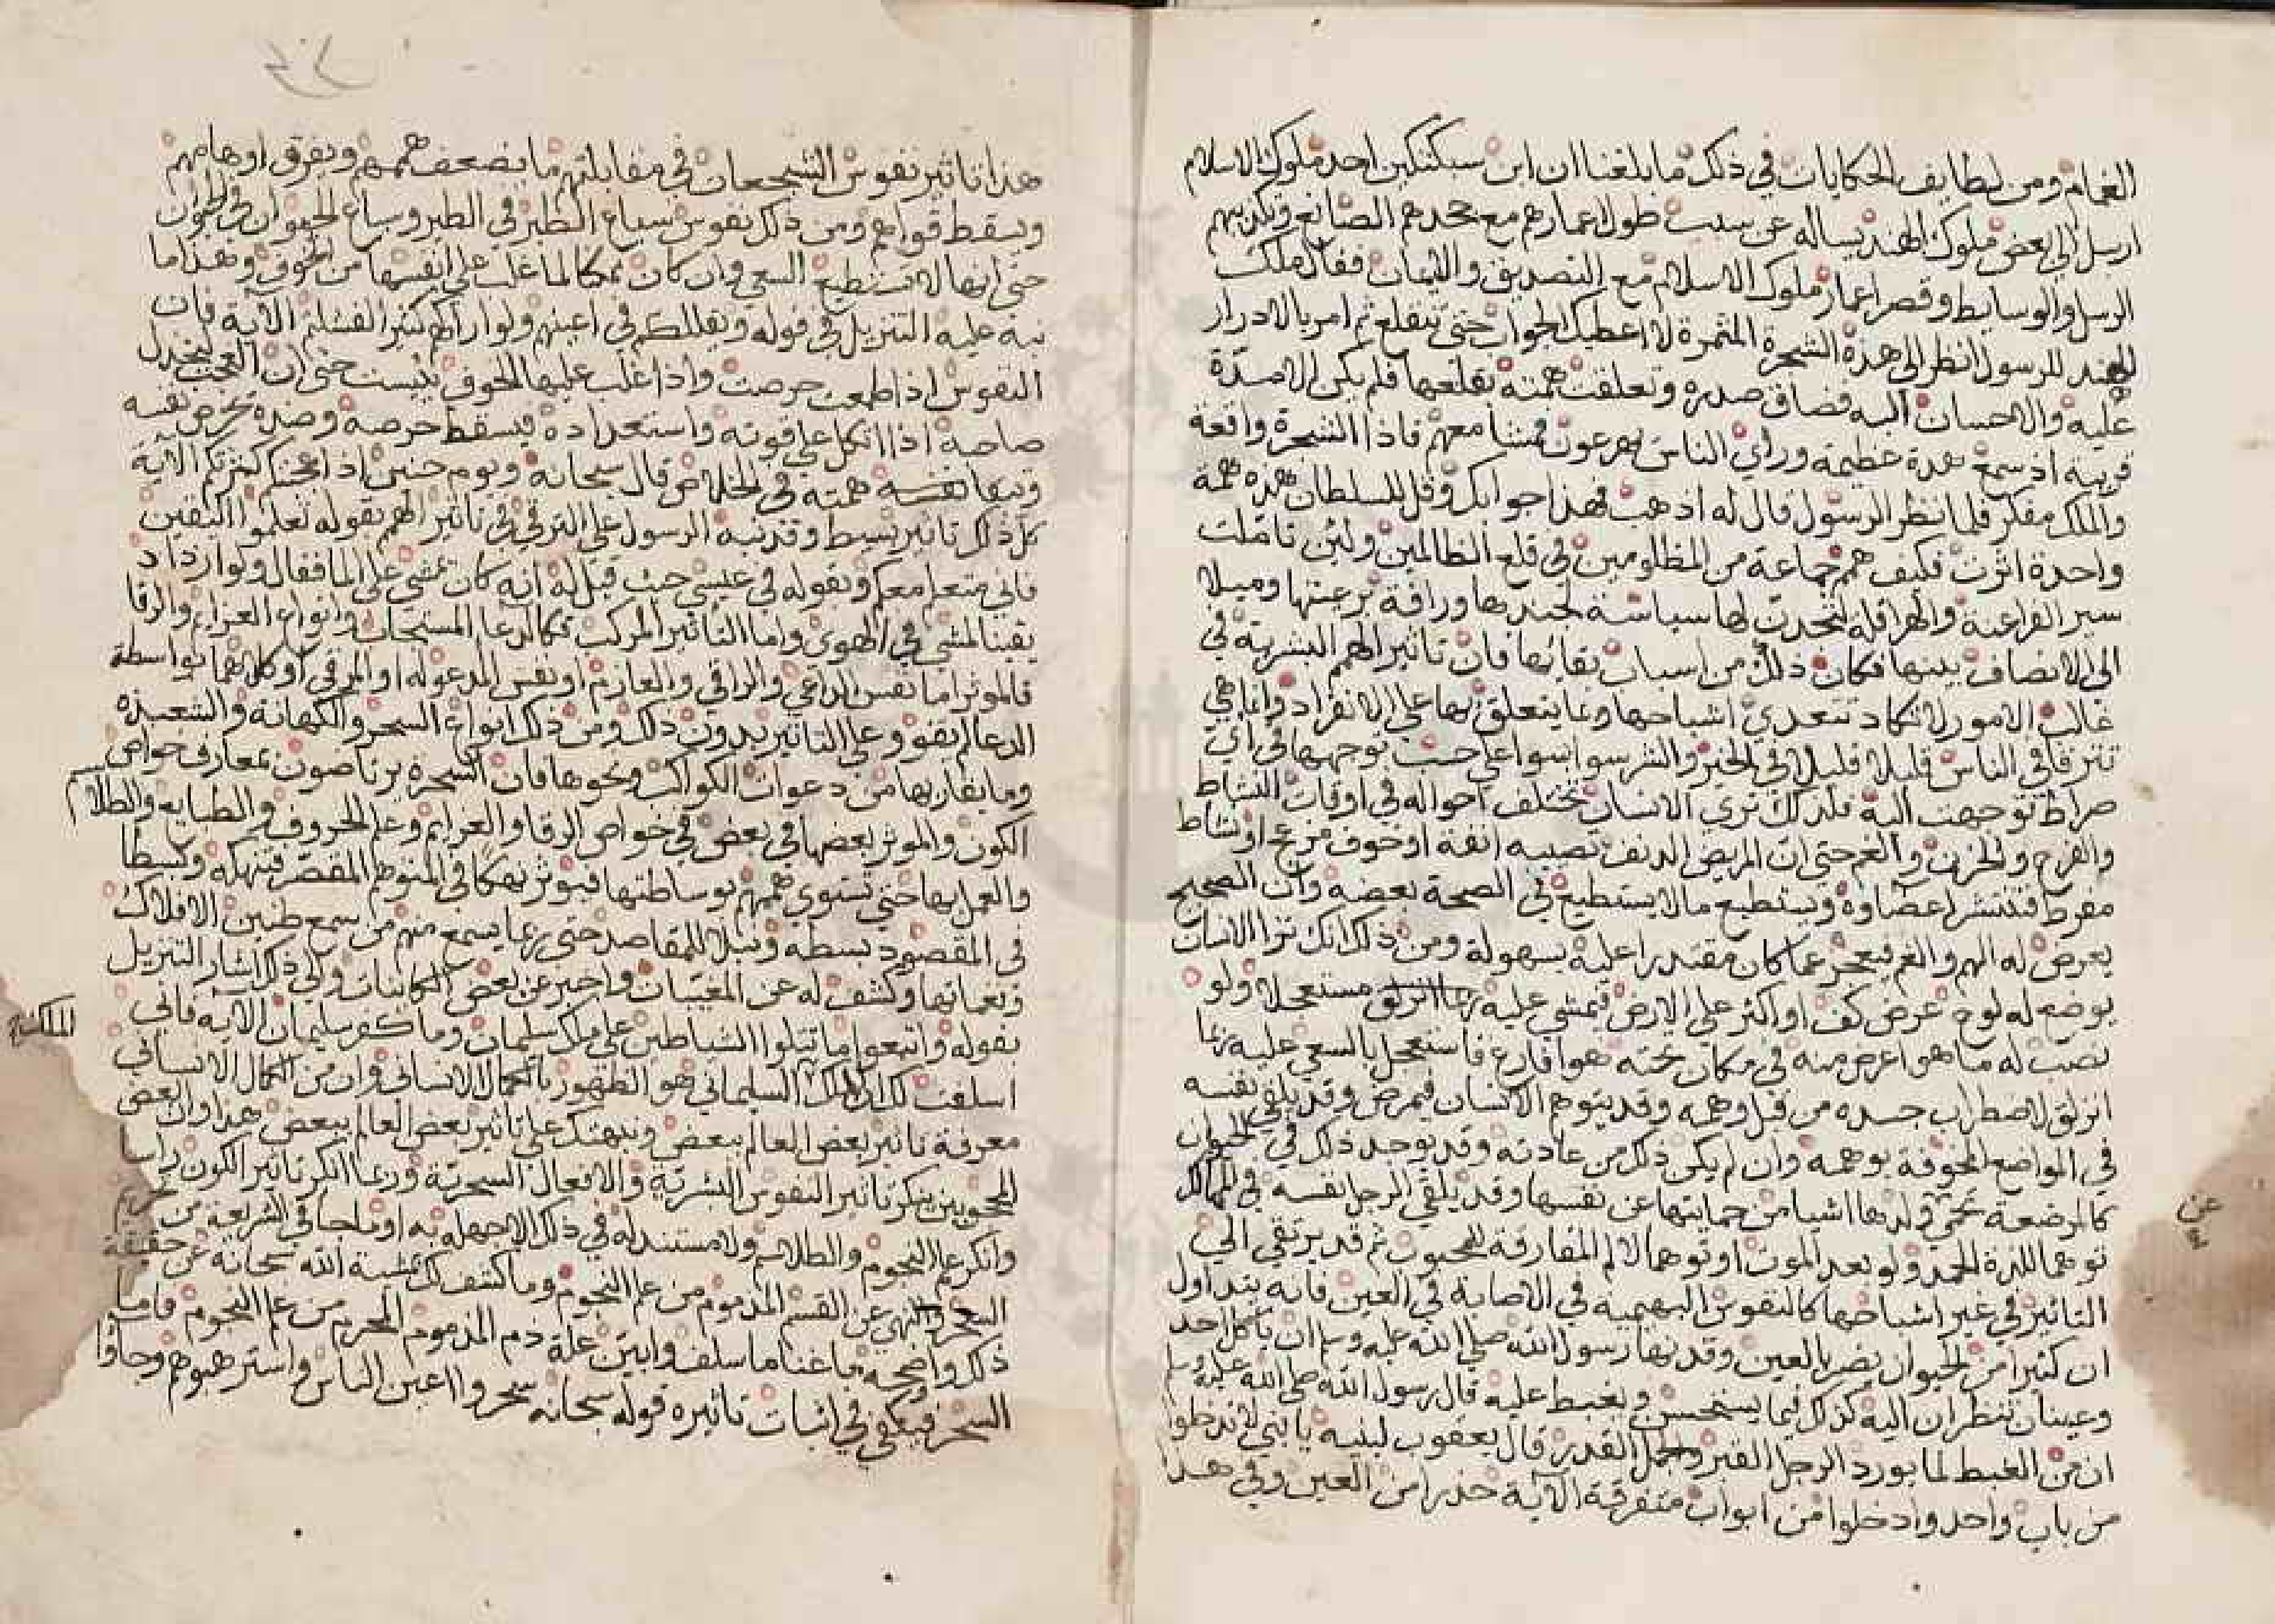 الغمام ومن لطايف الحكايات في ذلك ما بلغنا ان ابن سبكتكين احد ملوك الاسلام
ارسل الي بعض ملوك الهند يساله عن سبب طول اعمارهم مع جحدهم الصانع وتكذيبهم
الرسل والوسايط وقصر اعمار ملوك الاسلام مع التصديق والايمان فقال ملك
الهند للرسول انظر الي هذه الشجرة المثمرة لا اعطيك الجواب حتي تنقلع ثم امر بالادرار
عليه والاحسان اليه فضاق صدره وتعلقت همته بقلعها فلم يكن الا مدة
قريبة اذ سمع هدة عظيمة وراي الناس يهرعون فمشا معهم فاذا الشجرة واقعة
والملك مفكر فلما نظر الرسول قال له اذهب فهذا جوابك وقل للسلطان هذه همة
واحدة اثرت فكيف همم جماعة من المظلومين في قلع الظالمين ولئن تاملت
سير الفراعنة والهراقلة لتجدن لها سياسة لجندها ورافة برعيتها وميلا
الي الانصاف بينها فكان ذلك من اسباب بقائها فان تاثير الهمم البشرية في
غالب الامور لا تكاد تتعدي اشباحها وما يتعلق بها علي الانفراد وانما هي
تترقا في الناس قليلا قليلا في الخير والشر سوا بسوا علي حسب توجهها في اي
صراط توجهت اليه فلذلك تري الانسان تختلف احواله في اوقات النشاط
والفرح والحزن والغم حتي ان المريض الدنف تصيبه انفة او خوف مزعج او نشاط
مفرط فتنتشر اعضاوه ويستطيع ما لا يستطيع في الصحة بعضه وان الصحيح
يعرض له الهم والغم فيعجز عما كان مقتدرا عليه بسهولة ومن ذلك انك ترا الانسان
يوضع له لوح عرض كف او اكثر علي الارض فيمشي عليه ربما انزلق مستعجلا ولو
نصب له ما هو اعرض منه في مكان تحته هوا فارغ فاستعجل بالسعي عليه ربما
انزلق لاضطراب جسده من قبل وهمه وقد يتوهم الانسان فيمرض وقد يلقي نفسه
في المواضع المخوفة بوهمه وان لم يكن ذلك من عادته وقد يوجد ذلك في الحيوان
كالمرضعة تحمي ولدها اشيا من حمايتها عن نفسها وقد يلقي الرجل نفسه في المهالك
عن
توهما للذة الحمد ولو بعد الموت او توهما لالم المفارقة للمحبوب ثم قد يرتقي الي
التاثير في غير اشباحها كالنفوس البهيمية في الاصابة في العين فانه يتداول
ان كثيرا من الحيوان يضر بالعين وقد نها رسول الله صلي الله عليه وسلم ان ياكل احد
وعينان تنظران اليه كذلك فيما يستحسن ويغبط عليه قال رسول الله صلي الله عليه وسلم
ان من الغبط لما يورد الرجل القبر والجمل القدر قال يعقوب لبنيه يا بني لا تدخلوا
من باب واحد وادخلوا من ابواب متفرقة الاية حذرا من العين وفي هذا
هذا تاثير نفوس الشجعان في مقابلتهم ما يضعف هممهم ويفرق اوهامهم
ويسقط قواهم ومن ذلك نفوس سباع الطير في الطير وسباع الحيوان في الحيوان
حتي انها لا تستطيع السعي وان كان ممكنا لما غلب علي انفسها من الخوف وهذا ما
نبه عليه التنزيل في قوله ويقللكم في اعينهم ولو اراكهم كثيرا لفشلتم الاية فان
النفوس اذا طمعت حرصت واذا غلب عليها الخوف يئست حتي ان العجب ليخذل
صاحبه اذا اتكل علي قوته واستعداده فيسقط حرصه وضده يحرض نفسه
وتبقا نفسه همته في الخلاص قال سبحانه ويوم حنين اذ اعجبتكم كثرتكم الاية
كل ذلك تاثير بسيط وقد نبه الرسول علي الترقي في تاثير الهمم بقوله تعلموا اليقين
فاني متعلم معكم وبقوله في عيسي حيث قيل له انه كان يمشي علي الما فقال ولو ازداد
يقينا لمشي في الهوي واما التاثير المركب فكالدعا المستجاب وانواع العزايم والرقا
فالموثر اما نفس الداعي والراقي والعازم او نفس المدعو له او المرقي او كلاهما بواسطة
الدعا لم يقوو علي التاثير بدون ذلك ومن ذلك ابواع السحر والكهانة والشعبذه
وما يقاربها من دعوات الكواكب ونحوها فان السحرة يرتاصون بمعارف خواص
الكون والموثر بعضها في بعض في خواص الرقا والعزايم وعلم الحروف والطبايع والطلاسم
والعمل بها حتي تستوي هممهم بوساطتها فيوثر بهكا في المتوهم المقصر فتهلكه وتسبطا
في المقصود بسطه ونيلا للمقاصد حتي ربما يسمع منهم من يسمع طنين الافلاك
ونغماتها وكشف له عن المغيبات واخبر عن بعض الكاينات والي ذلك اشار التنزيل
بقوله واتبعوا ما تتلوا الشياطين علي ملك سليمان وما كفر سليمان الاية فاني
الملكية
اسلفت لك ان الملك السليماني هو الظهور بالكمال الانساني وان من الكمال الانساني
معرفة تاثير بعض العالم ببعض ونبهتك علي تاثير بعض العالم ببعض هذا وان بعض
المحجوبين ينكر تاثير النفوس البشرية والافعال السحرية وربما انكر تاثير الكون راسا
وانكر علم النجوم والطلاسم ولا مستند له في ذلك الا جهله به او ما جا في الشريعة من تحريم
السحر والنهي عن القسم المذموم من علم النجوم وما كشف لك بمشية الله سبحانه عن حقيقة
ذلك واضحه بما غنا ما سلف وابين علة ذم المذموم المحرم من علم النجوم فاما
السحر فيكفي في اثبات تاثيره قوله سبحانه سحروا اعين الناس واسترهبوهم وجاوا